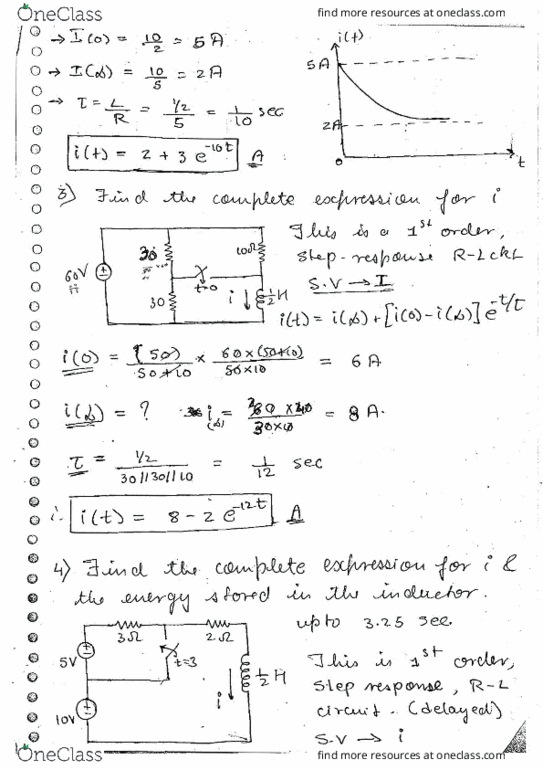 OneClass
find more resources at oneclass.com
→ I(0) = 10/2 = 5A
→ I(∞) = 10/5 = 2A
→ τ = L/R = ½/5 = 1/10 sec
i(t) = 2 + 3 e^-10t A
i(t)
5A
2A
0
t
3) Find the complete expression for i
60V
30
10Ω
t=0
30
i ↓
½H
This is a 1st order,
step-response R-L ckt
S.V → I
i(t) = i(∞) + [i(0) - i(∞)] e^-t/τ
i(0) = (50)/50+10 × 60×(50+10)/50×10 = 6A
i(∞) = ? i(∞) = 60 × 40/30×10 = 8A.
τ = ½/30||30||10 = 1/12 sec
i(t) = 8 - 2 e^-12t A
4) Find the complete expression for i &
the energy stored in the inductor.
upto 3.25 sec
3Ω
2Ω
5V
t=3
10V
i ↓
½H
This is 1st order,
step response, R-L
circuit. (delayed)
S.V → i
OneClass
find more resources at oneclass.com